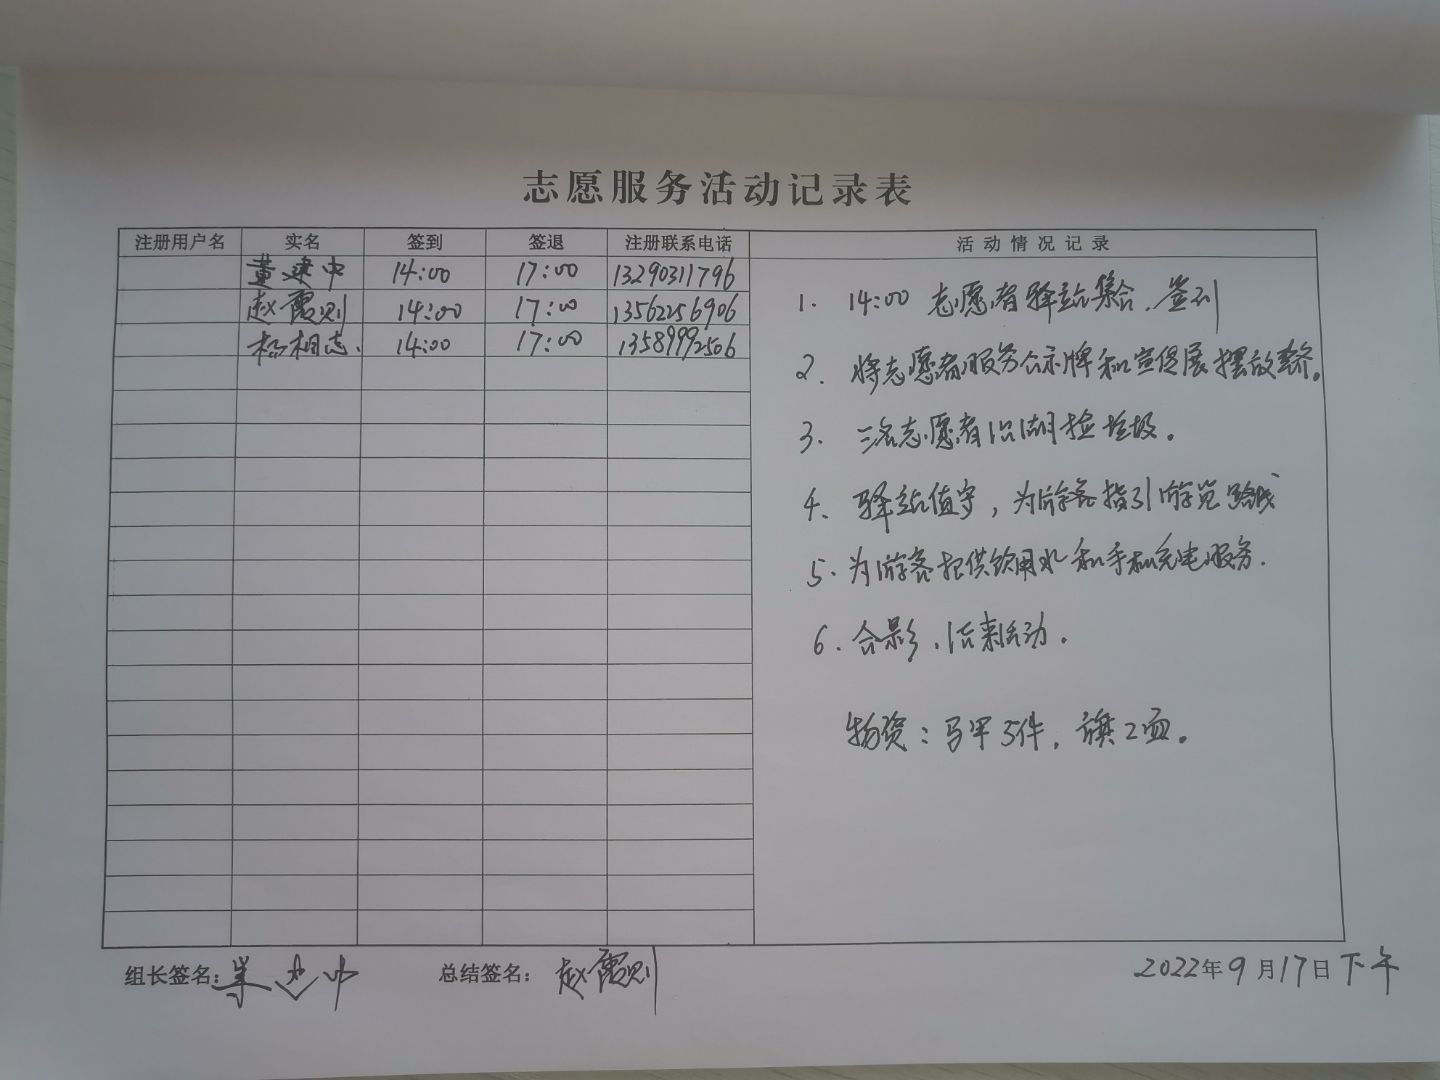 志愿服务活动记录表
注册用户名 实名 签到 签退 注册联系电话 活动情况记录
董建中 14:00 17:00 13290311796
赵霞则 14:00 17:00 13562256906
杨相志 14:00 17:00 13589992506
1. 14:00 志愿者驿站集合,签到
2. 将志愿者服务公示牌和宣传展摆放整齐。
3. 三名志愿者沿湖捡垃圾。
4、驿站值守,为游客指引游览路线
5. 为游客提供饮用水和手机充电服务.
6. 合影,结束活动.
物资:马甲5件,旗2面。
组长签名: 总结签名: 赵霞则
2022年9月17日下午